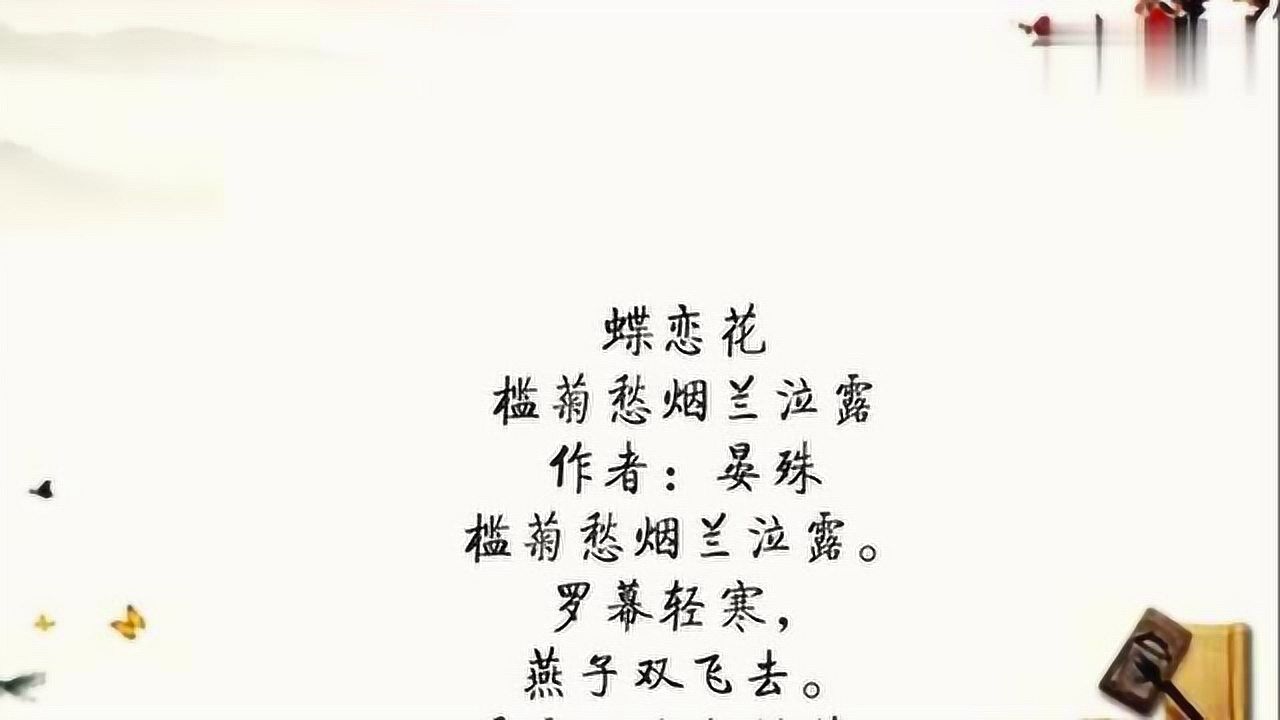 蝶恋花
槛菊愁烟兰泣露
作者：晏殊
槛菊愁烟兰泣露。
罗幕轻寒，
燕子双飞去。